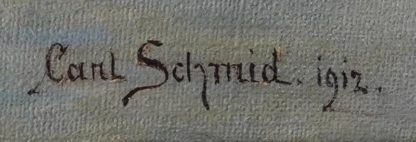 Carl Schmid. 1912.